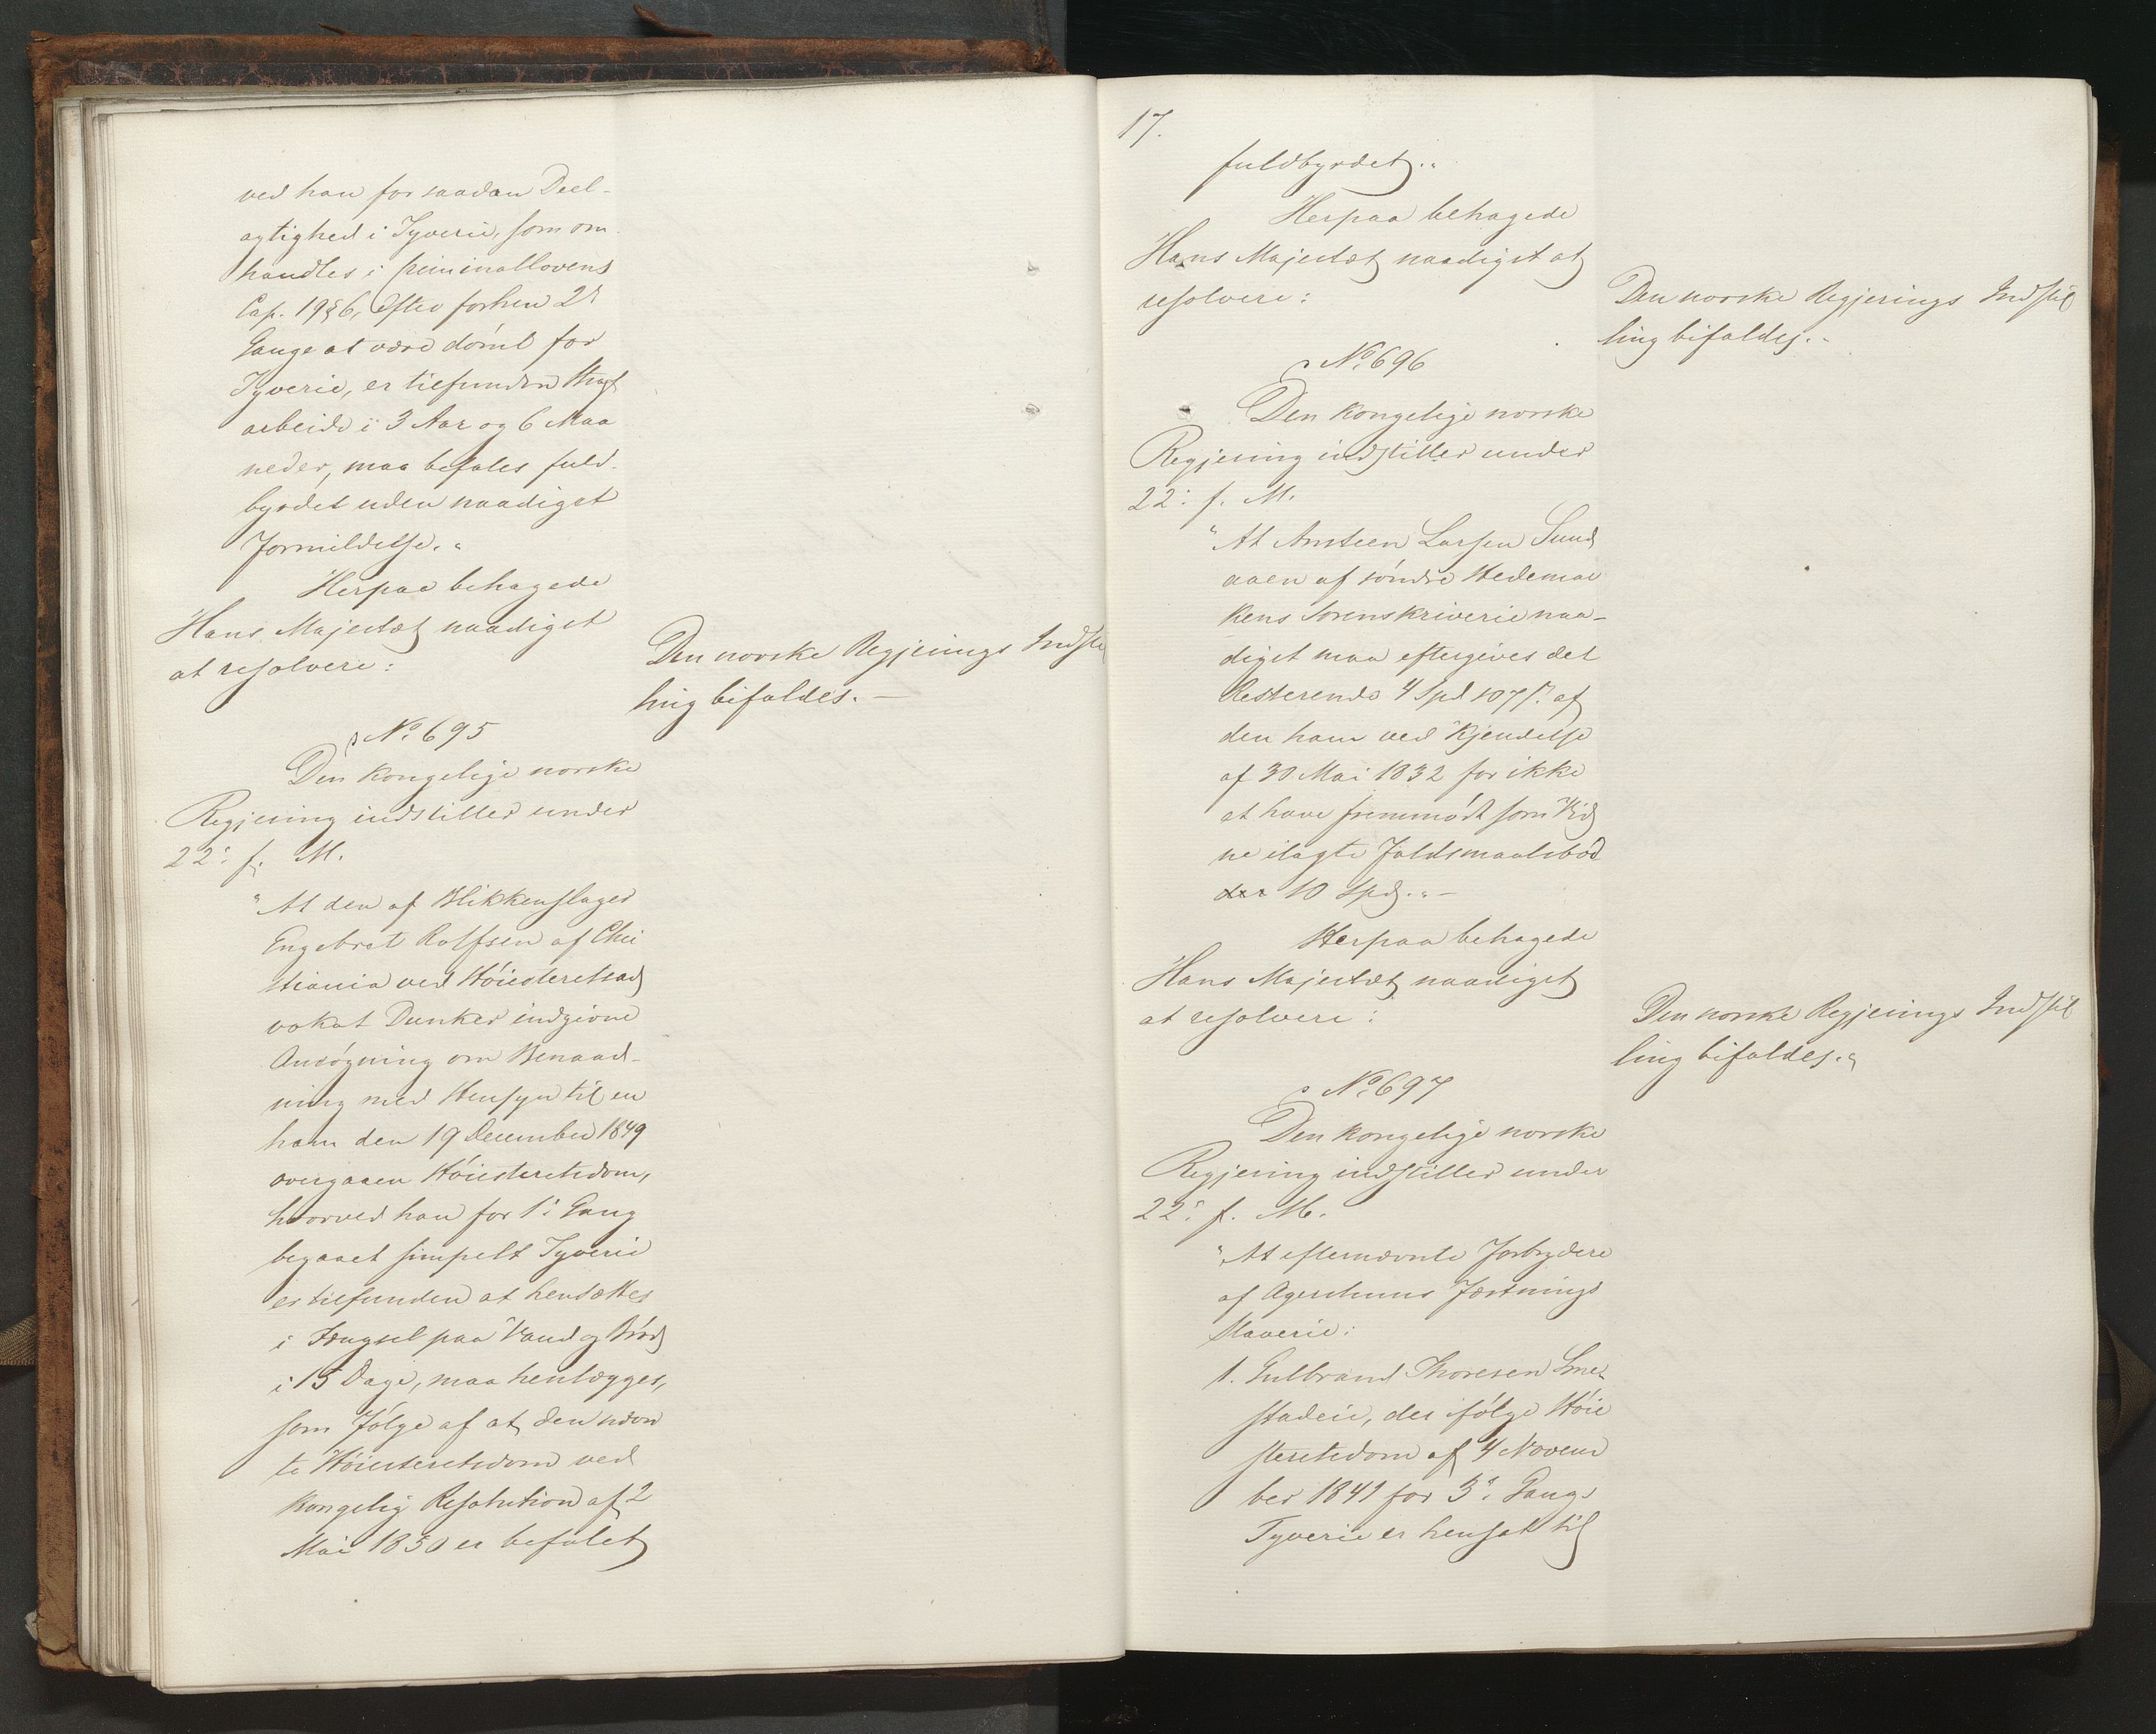 ved han for saadan Deel-
agtighed i Tyverie, som om
handles i Criminallovens
Cap. 19 § 6, efter forhen 2de
Gange at være dømt for
Tyverie, er tilfunden Straf
arbeide i 3 Aar og 6 Maa
neder, maa befales fuld-
byrdet uden naadigst
Formildelse."
Herpaa behagede
Hans Majestæt naadigst
at resolvere:
Den norske Regjerings Indstil
ling bifaldes. —
No 695
Den Kongelige norske
Regjering indstiller under
22: f. M.
"At den af Blikkenslager
Engebret Rolfsen af Chri
stiania ved Høiesteretsad
vokat Dunker indgivne
Ansøgning om Benaad-
ning med Hensyn til en
ham den 19 December 1849
overgaaen Høiesteretsdom,
hvorved han for 1: Gang
begaaet simpelt Tyverie
er tilfunden at hensættes
i Fængsel paa Vand og Brød
i 15 Dage, maa henlægges,
som Følge af at den nævn
te Høiesteretsdom ved
Kongelig Resolution af 2
Mai 1850 er befalet
17.
fuldbyrdet."
Herpaa behagede
Hans Majestæt naadigst at
resolvere:
Den norske Regjerings Indstil
ling bifaldes.-
No 696
Den Kongelige norske
Regjering indstiller under
22: f. M.
"At Amsteen Larsen Sund
aaen af søndre Hedemar
kens Sorenskriverie naa-
digst maa eftergives det
Resterende 4 Spd 107 s. af
den ham ved Kjendelse
af 30 Mai 1832 for ikke
at have fremmødt som Vid
ne ilagte Faldsmaalsbød
der 10 Spd." -
Herpaa behagede
Hans Majestæt naadigst
at resolvere:
Den norske Regjerings Indstil
ling bifaldes."
No 697
Den Kongelige norske
Regjering indstiller under
22: f. M.
"At efternævnte Forbrydere
af Agershuus Fæstnings
Slaverie:
1. Gulbrand Thoresen Sme-
stadeie, der ifølge Høie
steretsdom af 4 Novem
ber 1841 for 3: Gangs
Tyverie er hensat til